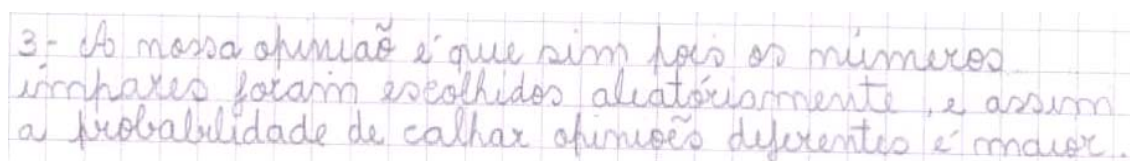 3- A nossa opinião é que sim pois os números
ímpares foram escolhidos aleatóriamente, e assim
a probabilidade de calhar opiniões diferentes é maior.